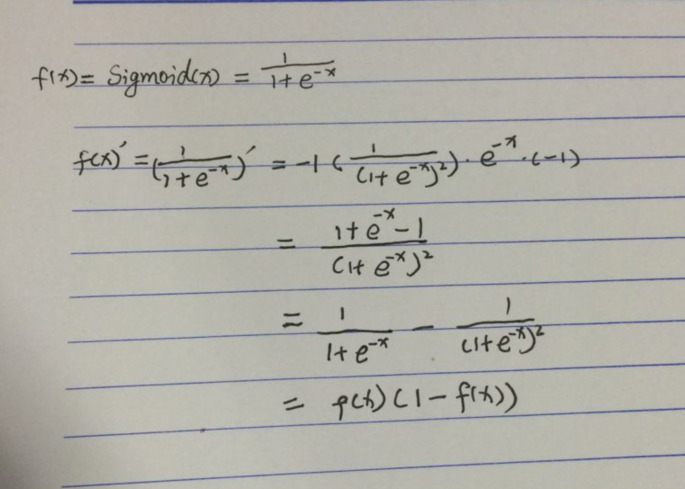 f(x) = Sigmoid(x) = 1/(1+e^-x)
f(x)' = (1/(1+e^-x))' = -1(1/(1+e^-x)^2)·e^-x·(-1)
= (1+e^-x-1)/(1+e^-x)^2
= 1/(1+e^-x) - 1/(1+e^-x)^2
= f(x)(1-f(x))